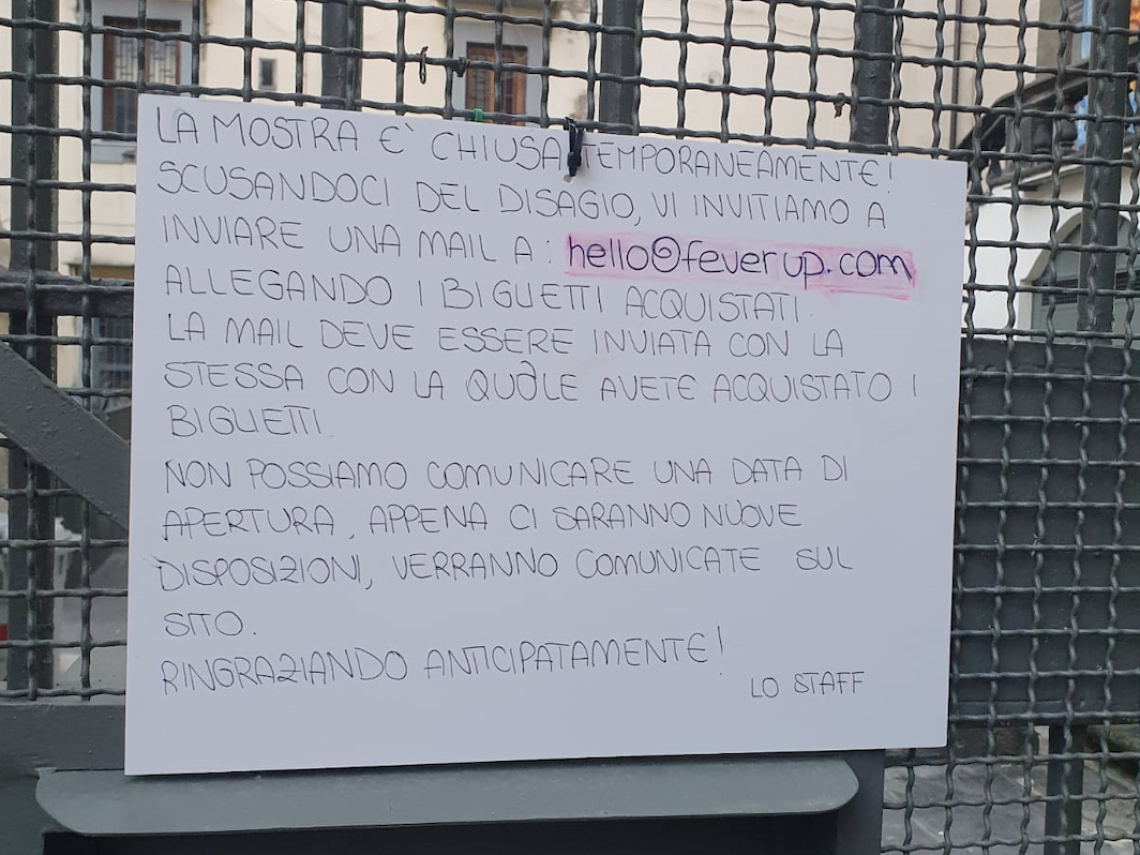 LA MOSTRA E' CHIUSA TEMPORANEAMENTE!
SCUSANDOCI DEL DISAGIO, VI INVITIAMO A
INVIARE UNA MAIL A: hello@feverup.com
ALLEGANDO I BIGLIETTI ACQUISTATI.
LA MAIL DEVE ESSERE INVIATA CON LA
STESSA CON LA QUALE AVETE ACQUISTATO I
BIGLIETTI.
NON POSSIAMO COMUNICARE UNA DATA DI
APERTURA, APPENA CI SARANNO NUOVE
DISPOSIZIONI, VERRANNO COMUNICATE SUL
SITO.
RINGRAZIANDO ANTICIPATAMENTE!
LO STAFF